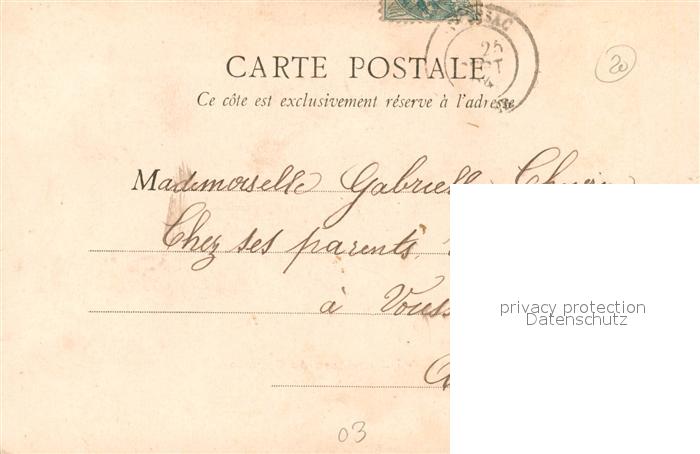 SSAC
25
20
CARTE POSTALE
Ce côte est exclusivement réserve à l'adresse
Mademoiselle Gabrielle
Chez ses parents,
à Vouss
privacy protection
Datenschutz
03